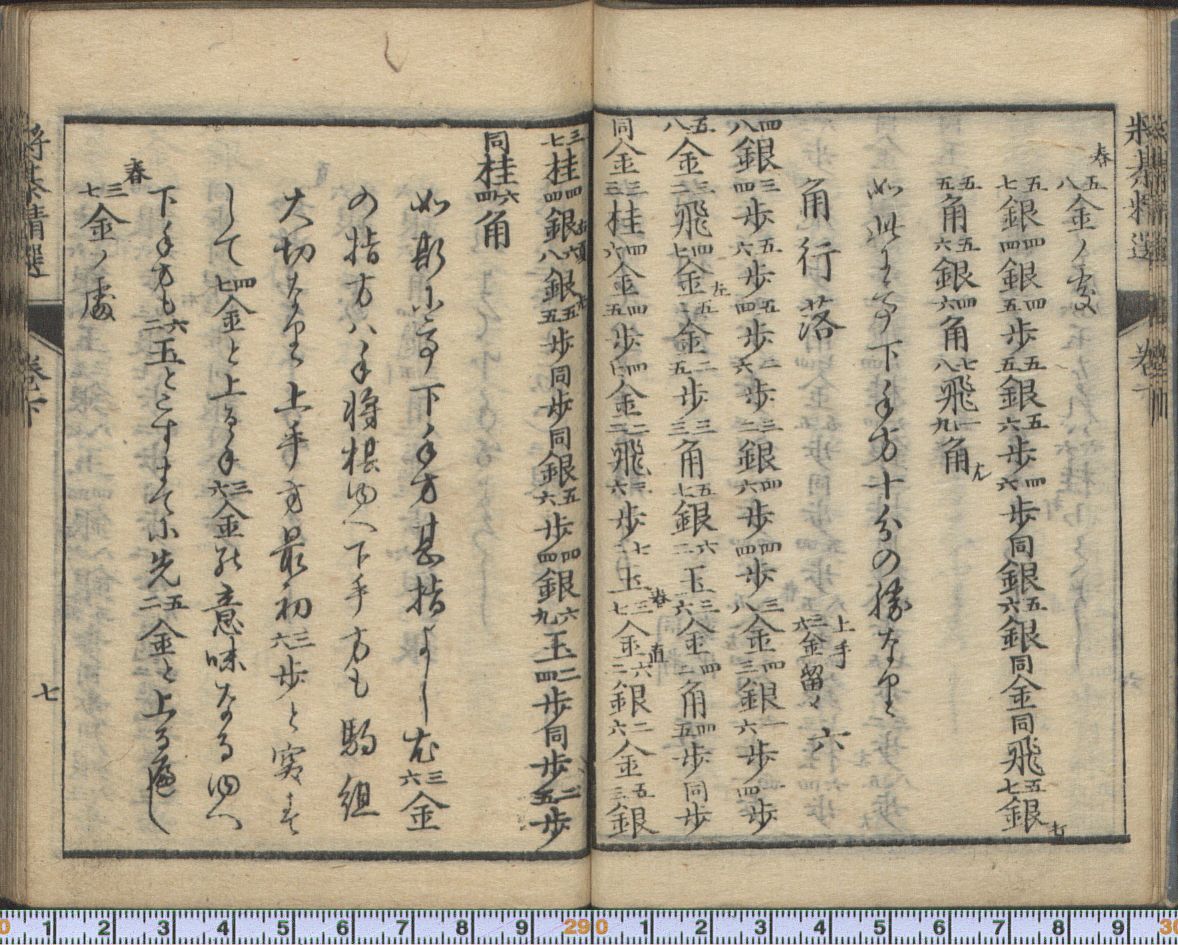 五八金ノ変
五七銀 四四銀 四五歩 五五銀 五六歩 四六歩 同銀 五六銀 同金 同飛 五七銀打
五五角 五六銀 四六角 七八飛 一九角成
如此にて下手方十分の勝なり
角行落 上手三六金留 六
四八銀 三四歩 五六歩 五四歩 二六歩 三二銀 四六歩 四四歩 三八金 四三銀 一六歩 一四歩
五八金 三二飛 四七金左 五二金 二五歩 三三角 五七銀 六二玉 三六金 四二角 四五歩 同歩
同金 三三桂 四六金 四五歩 四四金 二二飛 三六歩 七二玉 三七金寄 六二銀直 二六金 五三銀
三七桂 四四銀右 六八銀 五五歩 同歩 同銀 五六歩 四四銀 六九玉 二四歩 同歩 二五歩
同桂 六四角
如斯にて下手方甚指よし尤三六金
の指方ハ手将棋ゆへ下手方も駒組
大切なり上手方最初三六歩と突ず
して四七金と上る手三六金の意味なるゆへ
下手方も六二玉とこすまでに先五二金と上る
三七金ノ変
将棊精選
巻下
七